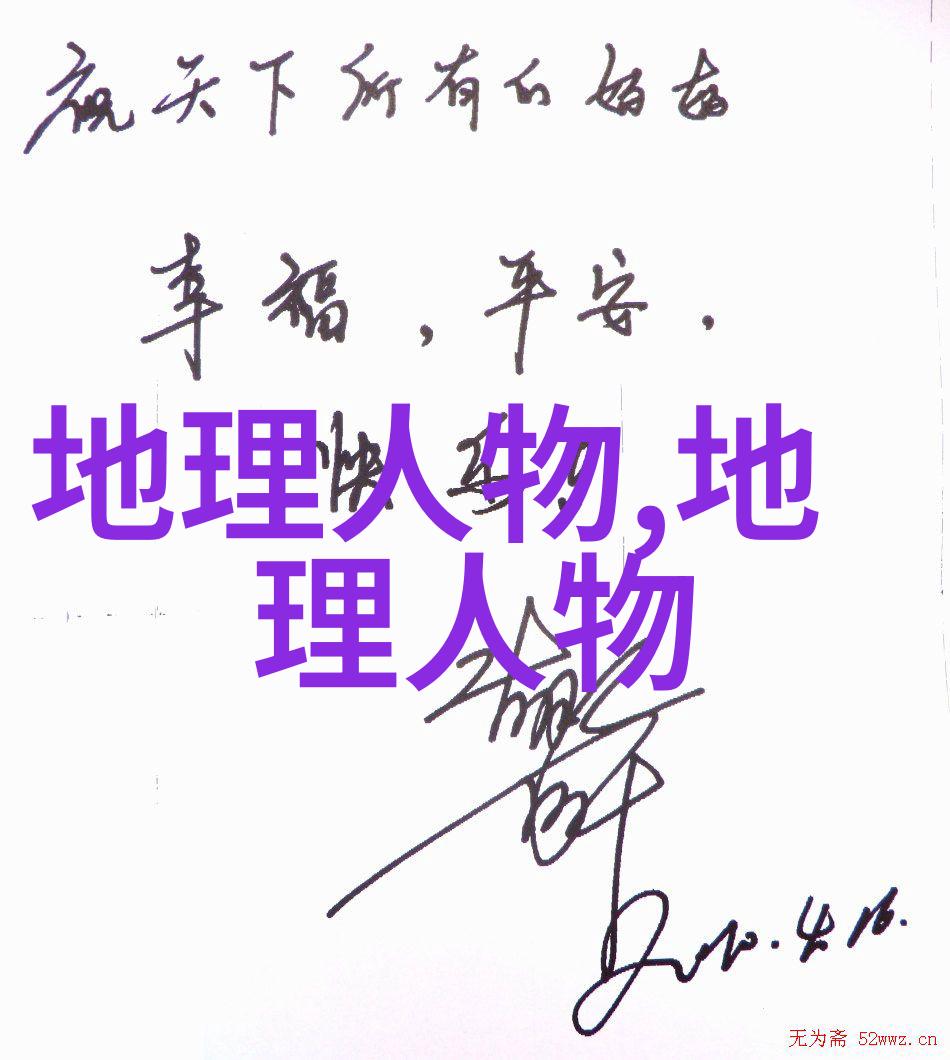 祝天下所有的妈妈
幸福，平安，
快乐！
地理人物,地
理人物
2010.4.16.
无为斋 52wwz.cn